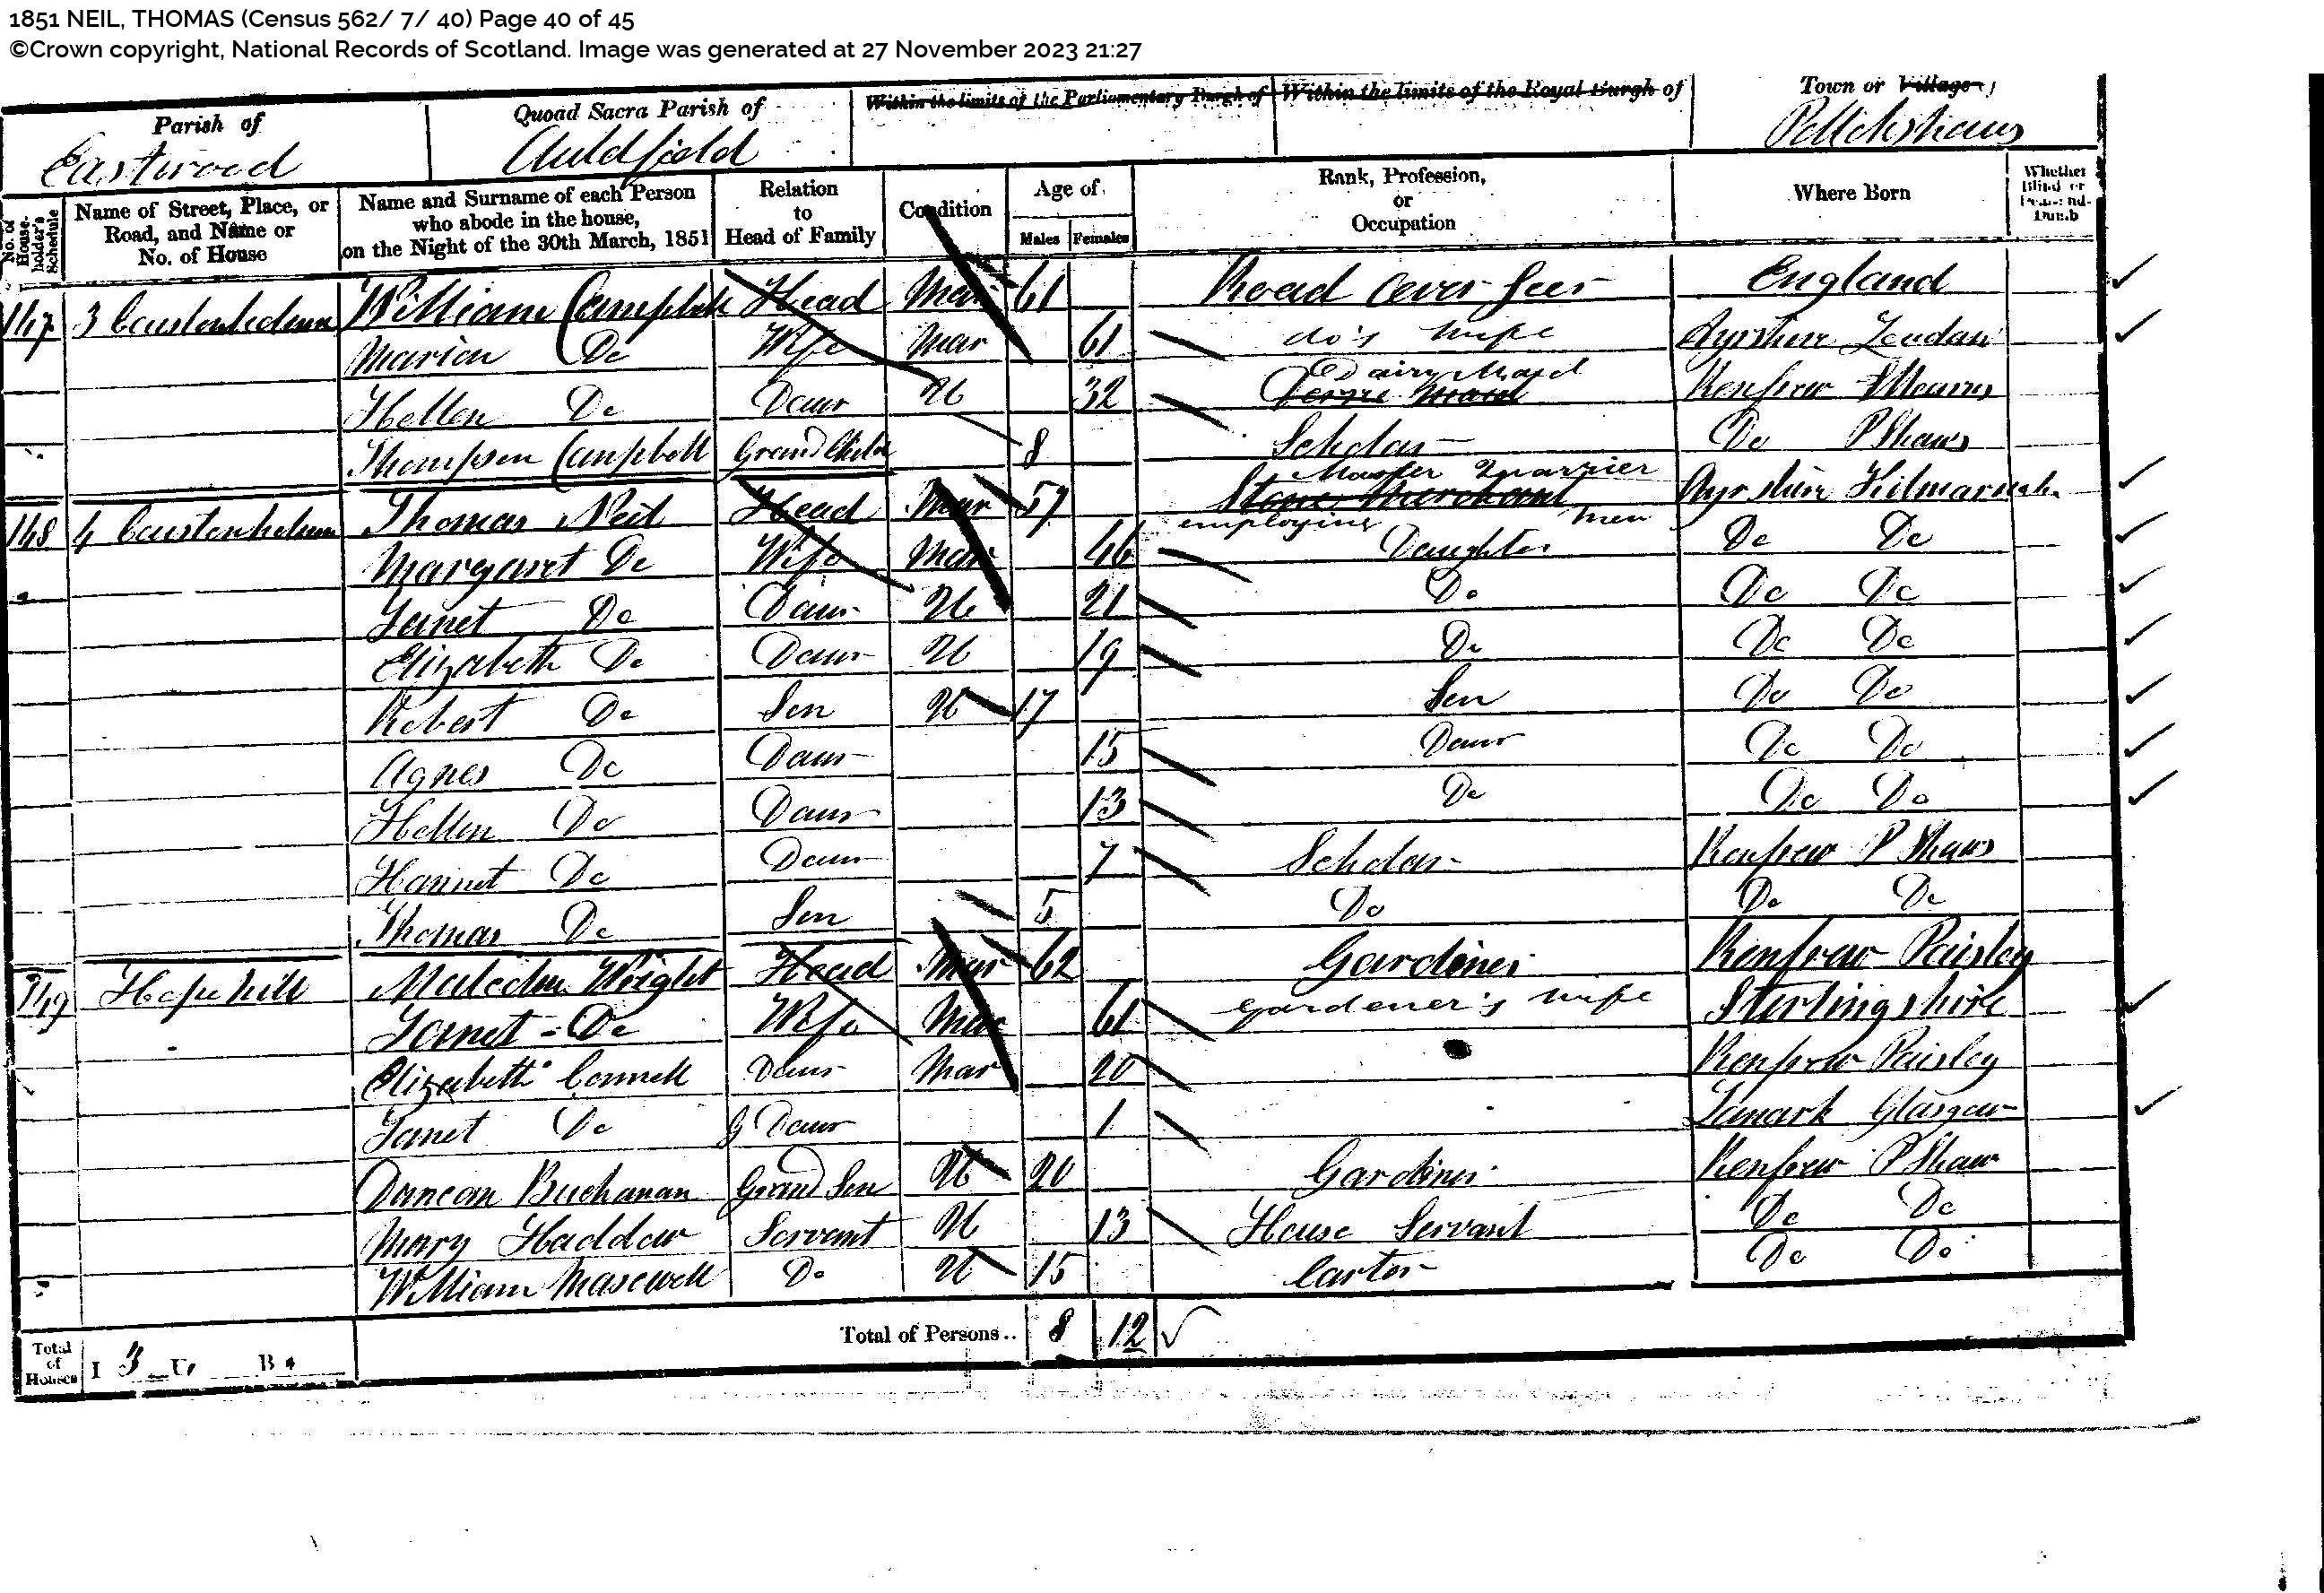 1851 NEIL, THOMAS (Census 562/ 7/ 40) Page 40 of 45
©Crown copyright, National Records of Scotland. Image was generated at 27 November 2023 21:27
Parish of Quoad Sacra Parish of Within the limits of the Parliamentary Burgh of Within the limits of the Royal Burgh of Town or Village
Eastwood Auldfield Pollokshaws
No. of House-holder's Schedule Name of Street, Place, or Road, and Name or No. of House Name and Surname of each Person who abode in the house, on the Night of the 30th March, 1851 Relation to Head of Family Condition Age of Males Females Rank, Profession, or Occupation Where Born Whether Blind or Deaf-and-Dumb
147 3 William Campbell Head Mar 61 Road Over Seer England
Marion Do Wife Mar 61 do's wife Ayrshire Loudan
Hellen Do Daur U 32 Dairy Maid Renfrew Mearns
Thompson Campbell Grand Child 8 Scholar Do P Shaws
148 4 Thomas Neil Head Mar 57 Master Quarrier Stone Merchant employing men Ayrshire Kilmarnock
Margaret Do Wife Mar 46 Daughter Do Do
Janet Do Daur U 21 Do Do Do
Elizabeth Do Daur U 19 Do Do Do
Robert Do Son U 17 Son Do Do
Agnes Do Daur 15 Daur Do Do
Hellen Do Daur 13 Do Do Do
Hannet Do Daur 7 Scholar Renfrew P Shaws
Thomas Do Son 5 Do Do Do
149 Hope hill Malcolm Wright Head Mar 62 Gardiner Renfrew Paisley
Janet Do Wife Mar 61 gardener's wife Sterlingshire
Elizabeth Connell Daur Mar 20 Renfrew Paisley
Janet Do G Daur 1 Lanark Glasgow
Duncan Buchanan Grand Son U 20 Gardiner Renfrew P Shaw
Mary Haddow Servant U 13 House Servant Do Do
William Maxwell Do U 15 Carter Do Do
Total of Houses I 3 U B Total of Persons.. 8 12